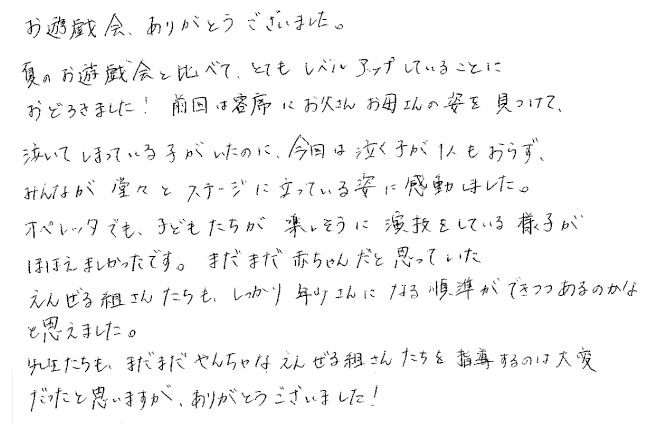 お遊戯会、ありがとうございました。
夏のお遊戯会と比べて、とてもレベルアップしていることに
おどろきました！前回は客席にお父さんお母さんの姿を見つけて、
泣いてしまっている子がいたのに、今回は泣く子が1人もおらず、
みんなが堂々とステージに立っている姿に感動しました。
オペレッタでも、子どもたちが楽しそうに演技をしている様子が
ほほえましかったです。まだまだ赤ちゃんだと思っていた
えんぜる組さんたちも、しっかり年少さんになる順準ができつつあるのかな
と思えました。
先生たちも、まだまだやんちゃなえんぜる組さんたちを指導するのは大変
だったと思いますが、ありがとうございました！